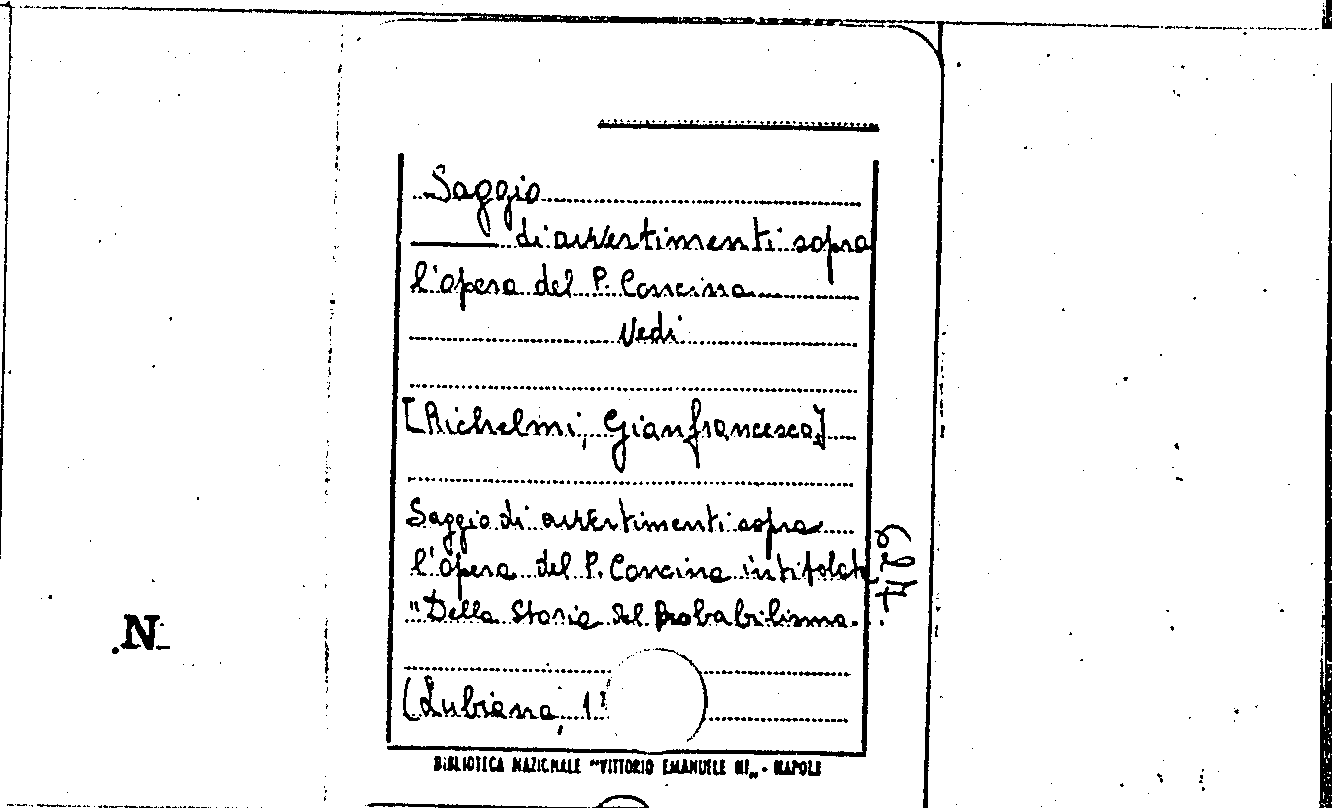 Saggio
di avvertimenti sopra
l'opera del P. Concina
Vedi
[Richelmi, Gianfrancesco]
Saggio di avvertimenti sopra
l'opera del P. Concina intitolat
"Della Storia del Probabilismo.
(Lubiana, 1
BIBLIOTECA NAZIONALE "VITTORIO EMANUELE III„ - NAPOLI
N